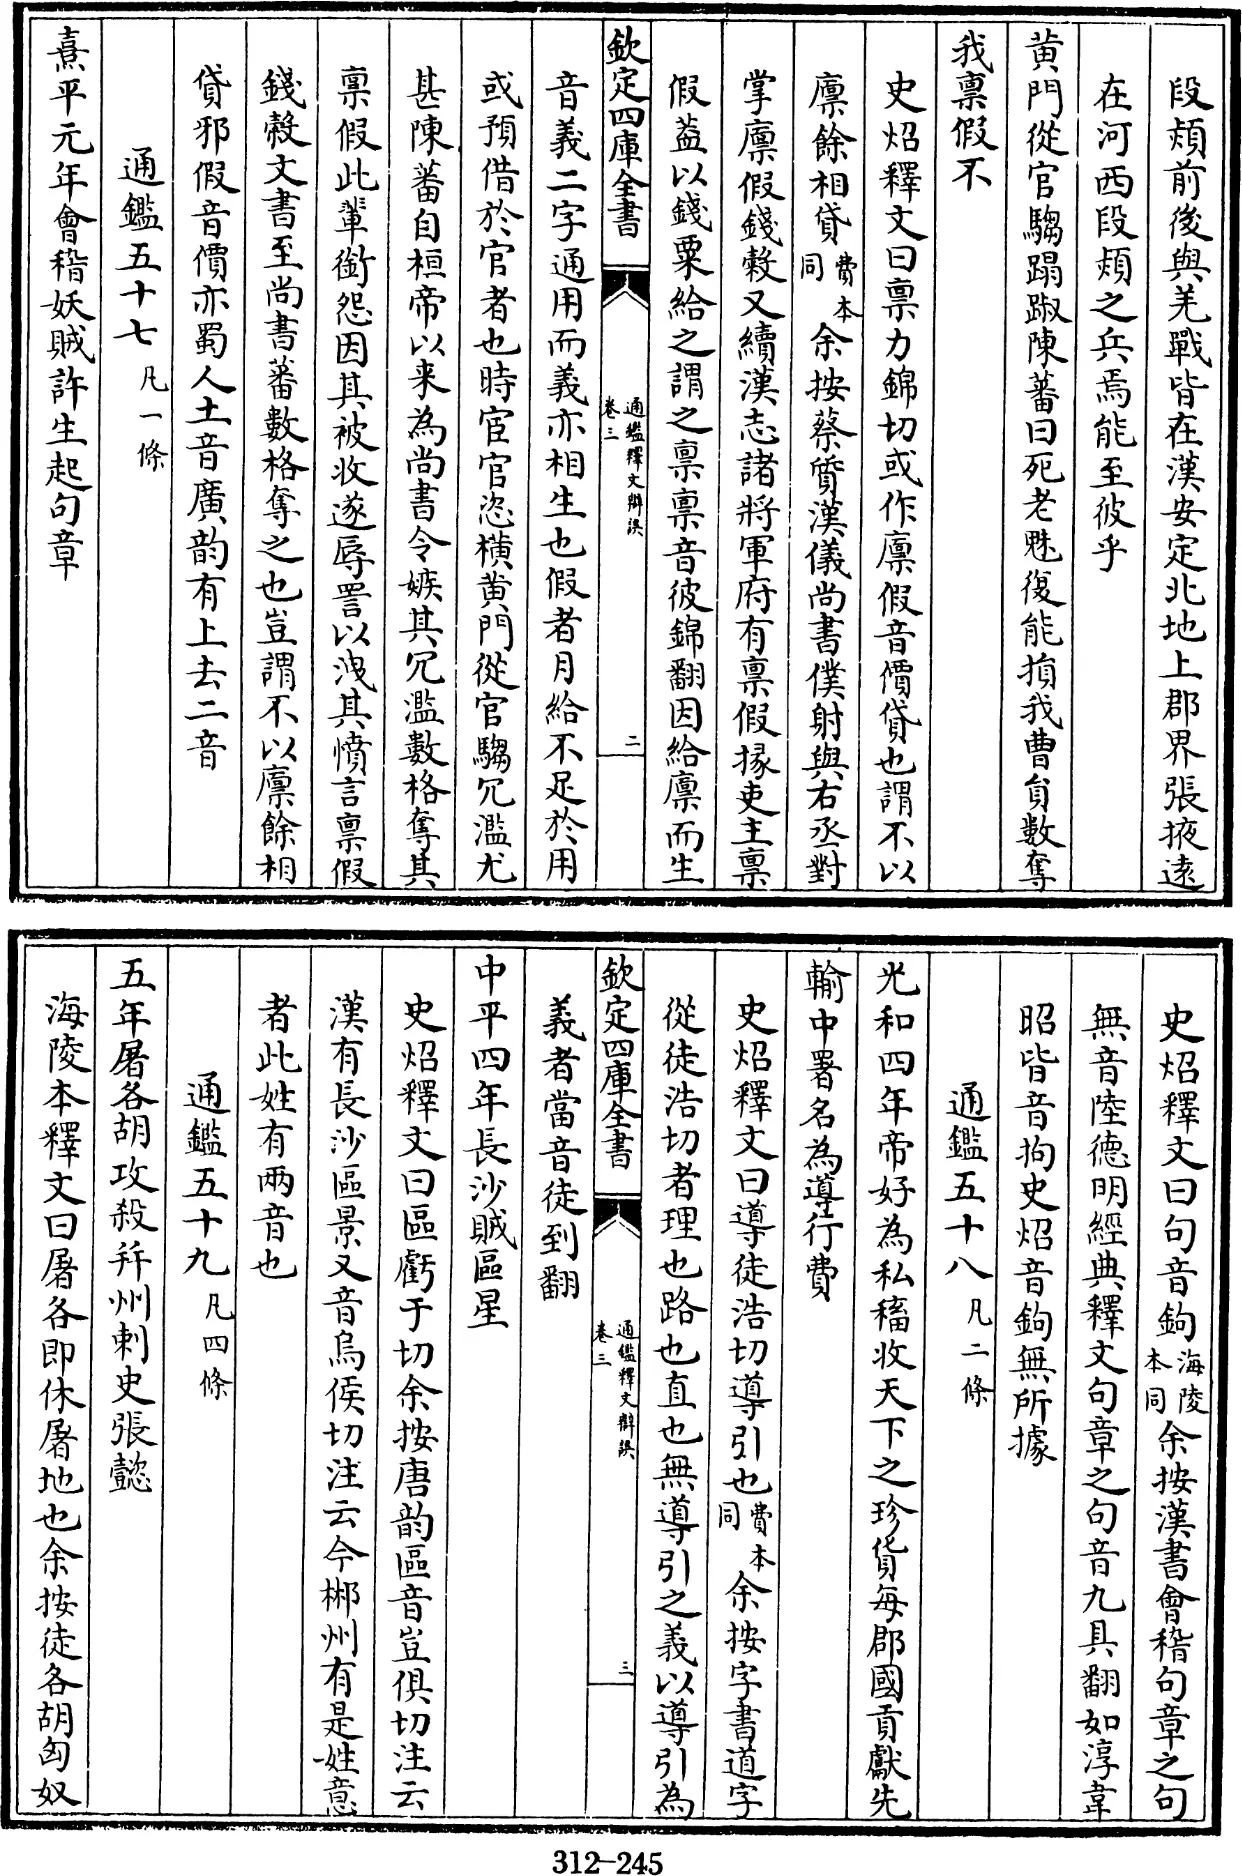 段熲前後與羌戰皆在漢安定北地上郡界張掖遠
在河西段熲之兵焉能至彼乎
黄門從官騶蹋踧陳蕃曰死老魅復能損我曹員數奪
我禀假不
史炤釋文曰禀力錦切或作廪假音價貸也謂不以
廪餘相貸費本同余按蔡質漢儀尚書僕射與右丞對
掌廪假錢穀又續漢志諸將軍府有禀假掾吏主禀
假葢以錢粟給之謂之禀禀音彼錦翻因給廪而生
欽定四庫全書
通鑑釋文辯誤
卷三
二
音義二字通用而義亦相生也假者月給不足於用
或預借於官者也時宦官恣横黄門從官騶冗濫尤
甚陳蕃自桓帝以来為尚書令嫉其冗濫數格奪其
禀假此輩銜怨因其被收遂辱詈以洩其憤言禀假
錢榖文書至尚書蕃數格奪之也豈謂不以廪餘相
貸邪假音價亦蜀人土音廣韵有上去二音
通鑑五十七凡一條
熹平元年會稽妖賊許生起句章
史炤釋文曰句音鉤海陵本同余按漢書會稽句章之句
無音陸德明經典釋文句章之句音九具翻如淳韋
昭皆音拘史炤音鉤無所據
通鑑五十八凡二條
光和四年帝好為私稸收天下之珍貨每郡國貢獻先
輸中署名為導行費
史炤釋文曰導徒浩切導引也費本同余按字書道字
從徒浩切者理也路也直也無導引之義以導引為
欽定四庫全書
通鑑釋文辯誤
卷三
三
義者當音徒到翻
中平四年長沙賊區星
史炤釋文曰區虧于切余按唐韵區音豈俱切注云
漢有長沙區景又音烏侯切注云今郴州有是姓意
者此姓有兩音也
通鑑五十九凡四條
五年屠各胡攻殺并州刺史張懿
海陵本釋文曰屠各即休屠地也余按徒各胡匈奴
312-245